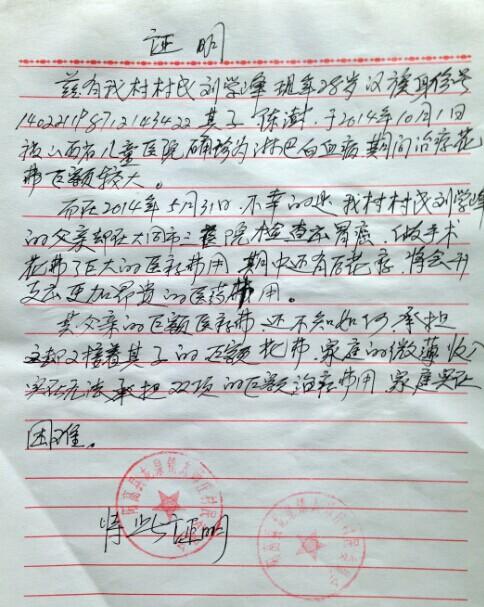 证明
兹有我村村民刘学峰 现年28岁 汉族 身份号
140221198712143422 其子 陈澍，于2014年10月1日
被山西省儿童医院确诊为淋巴白血病 期间治疗花
费巨额较大。
而在2014年5月31日，不幸的是 我村村民刘学峰
的父亲却在大同市三医院检查出胃癌，做手术
花费了巨大的医疗费用，期中还有后花疗，将会开
支出更加昂贵的医药费用。
其父亲的巨额医疗费还不知如何承担
又接着其子的巨额花费，家庭的微薄收入
实在无法承担 22项的巨额治疗费用 家庭实在
困难。
特此证明